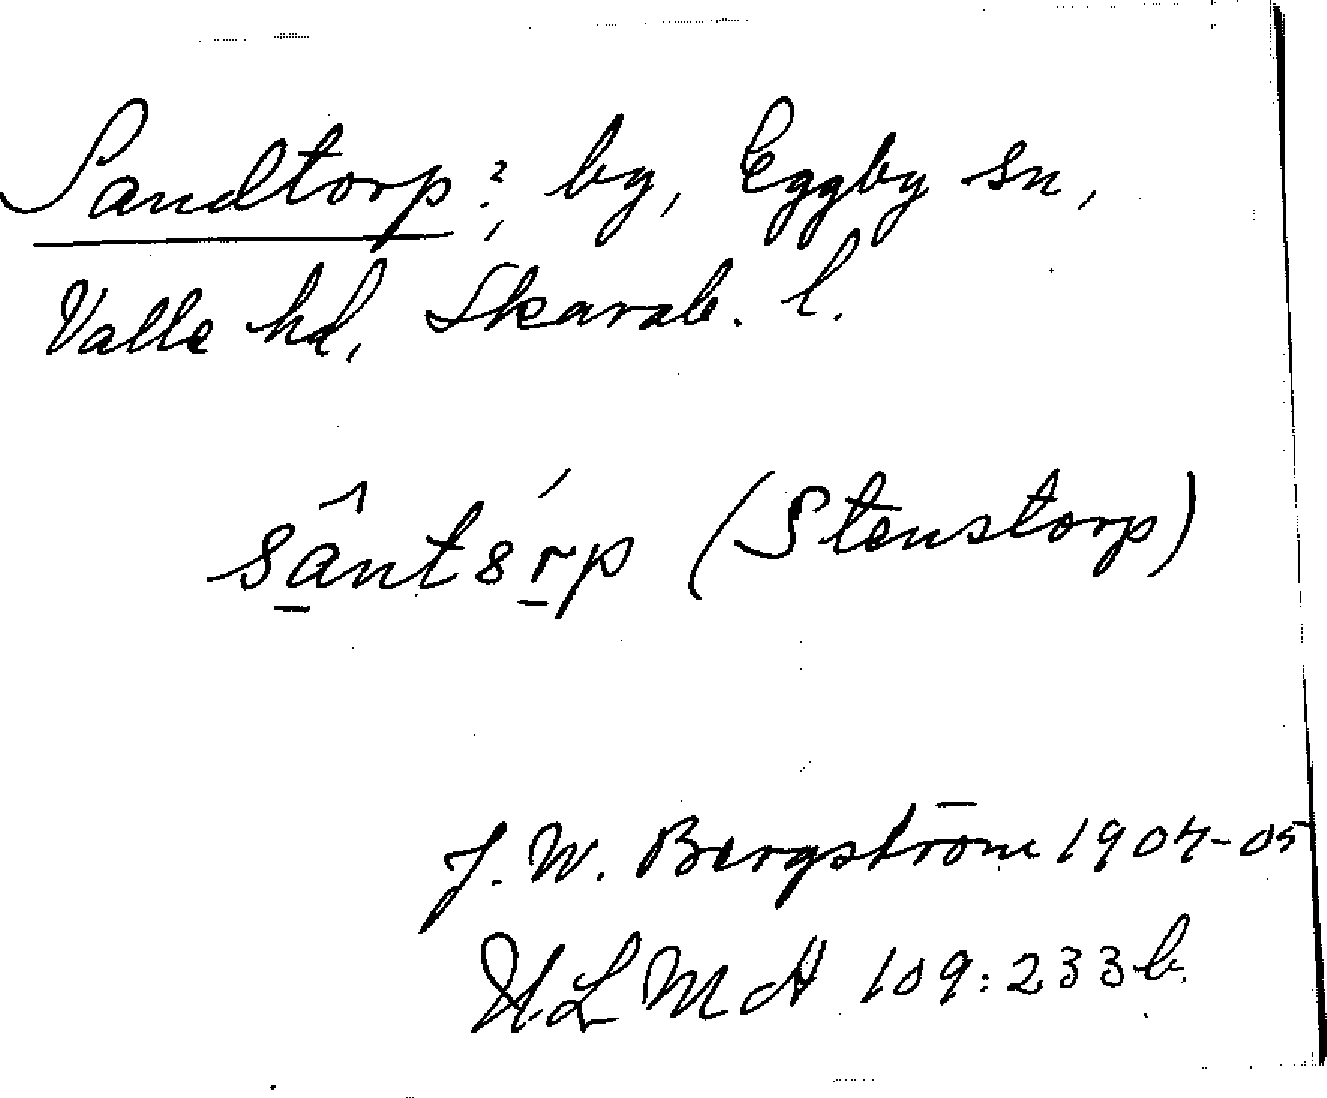 Sandtorp?, by, Eggby sn,
Valle hd, Skarab. l.
(Stenstorp)
J. W. Bergström 1904-05
ULMA 109:233 b.